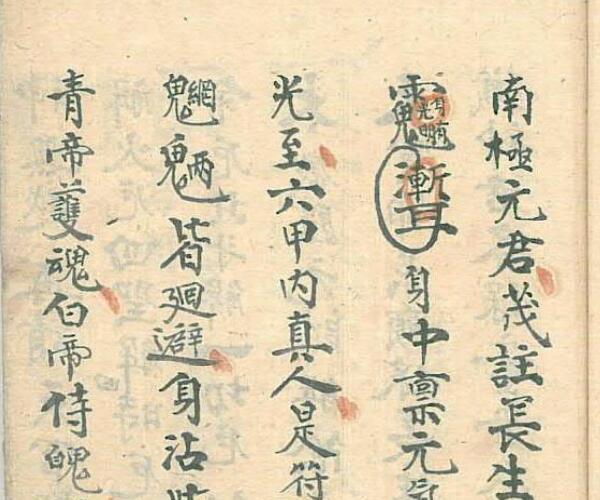 南極元君茂註長生
漸耳身中稟元氣
光至六甲內真人是符
魍魎皆廻避身沾
青帝護魂白帝侍魄